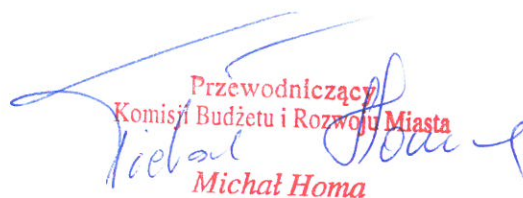 Przewodniczący
Komisji Budżetu i Rozwoju Miasta
Michał Homa
Michał Homa